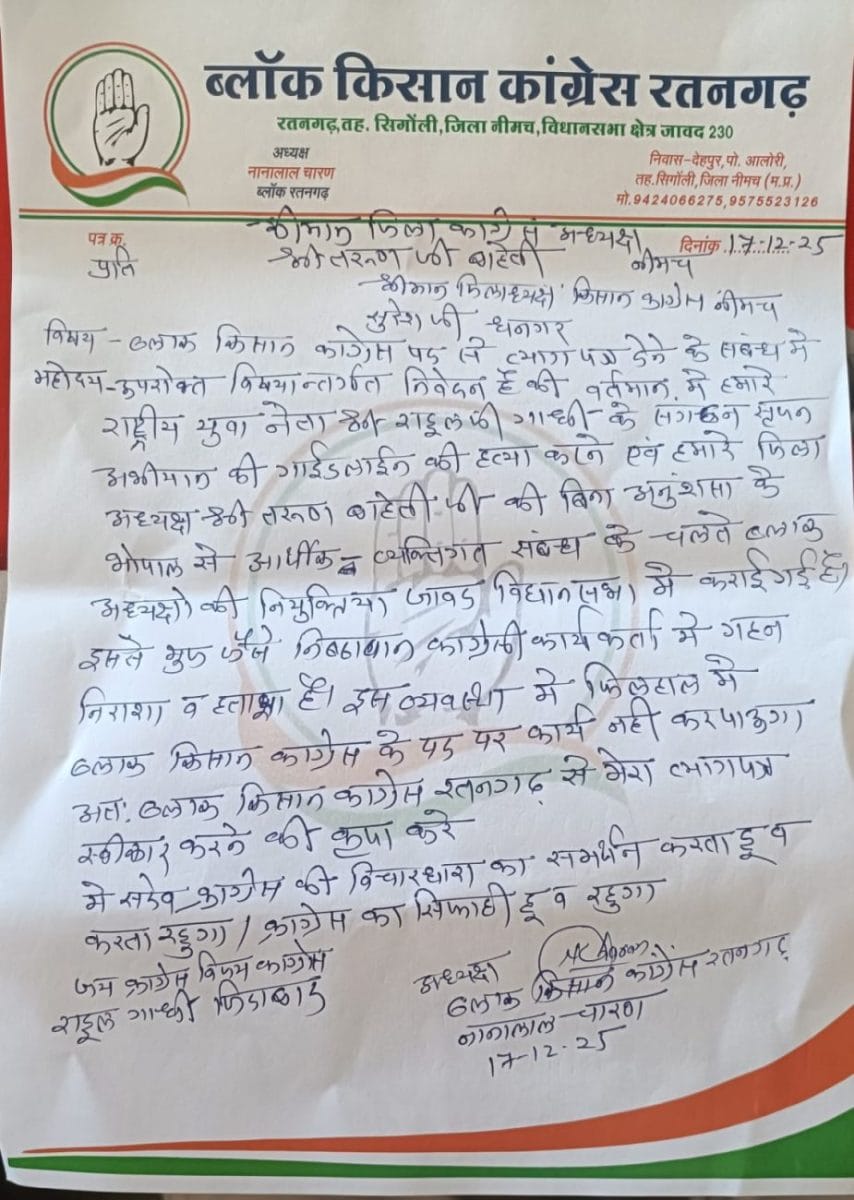 ब्लॉक किसान कांग्रेस रतनगढ़
रतनगढ़,तह. सिगोंली,जिला नीमच,विधानसभा क्षेत्र जावद 230
अध्यक्ष
नानालाल चारण
ब्लॉक रतनगढ़
निवास-देहपुर,पो. आलोरी,
तह.सिगोंली,जिला नीमच (म.प्र.)
मो.9424066275,9575523126
पत्र क्र.
दिनांक 17-12-25
श्रीमान जिला काग्रेस अध्यक्ष
प्रति श्री तरूण जी बाहेती नीमच
श्रीमान जिलाध्यक्ष किसान काग्रेस नीमच
मुकेश जी धनगर
विषय - ब्लाक किसान काग्रेस पद से त्याग पत्र देने के सबंध मे
महोदय - उपरोक्त विषयान्तर्गत निवेदन है की वर्तमान मे हमारे
राष्ट्रीय युवा नेता श्री राहूल जी गान्धी के सगठन सृजन
अभीयान की गाईडलाईन की हत्या करने एवं हमारे जिला
अध्यक्ष श्री तरूण बाहेती जी की बिना अनुंशसा के
भोपाल से आर्थीक व्यक्तिगत सबंध के चलते ब्लाक
अध्यक्षो की नियुक्तिया जावद विधानसभा मे कराई गई है।
इससे मुझ जैसे निष्ठावान काग्रेसी कार्यकर्ता मे गहन
निराशा व हताशा है। इस व्यवस्था मे फिलहाल मे
ब्लाक किसान काग्रेस के पद पर कार्य नही कर पाऊगा
अतः ब्लाक किसान काग्रेस रतनगढ़ से मेरा त्यागपत्र
स्वीकार करने की कृपा करे
मे सदेव काग्रेस की विचारधारा का समर्थन करता हू व
करता रहुगा / काग्रेस का सिपाही हू व रहुगा
जय काग्रेस विजय काग्रेस
राहूल गान्धी जिदाबाद
अध्यक्ष
ब्लाक किसान काग्रेस रतनगढ़
नानालाल चारण
17-12-25